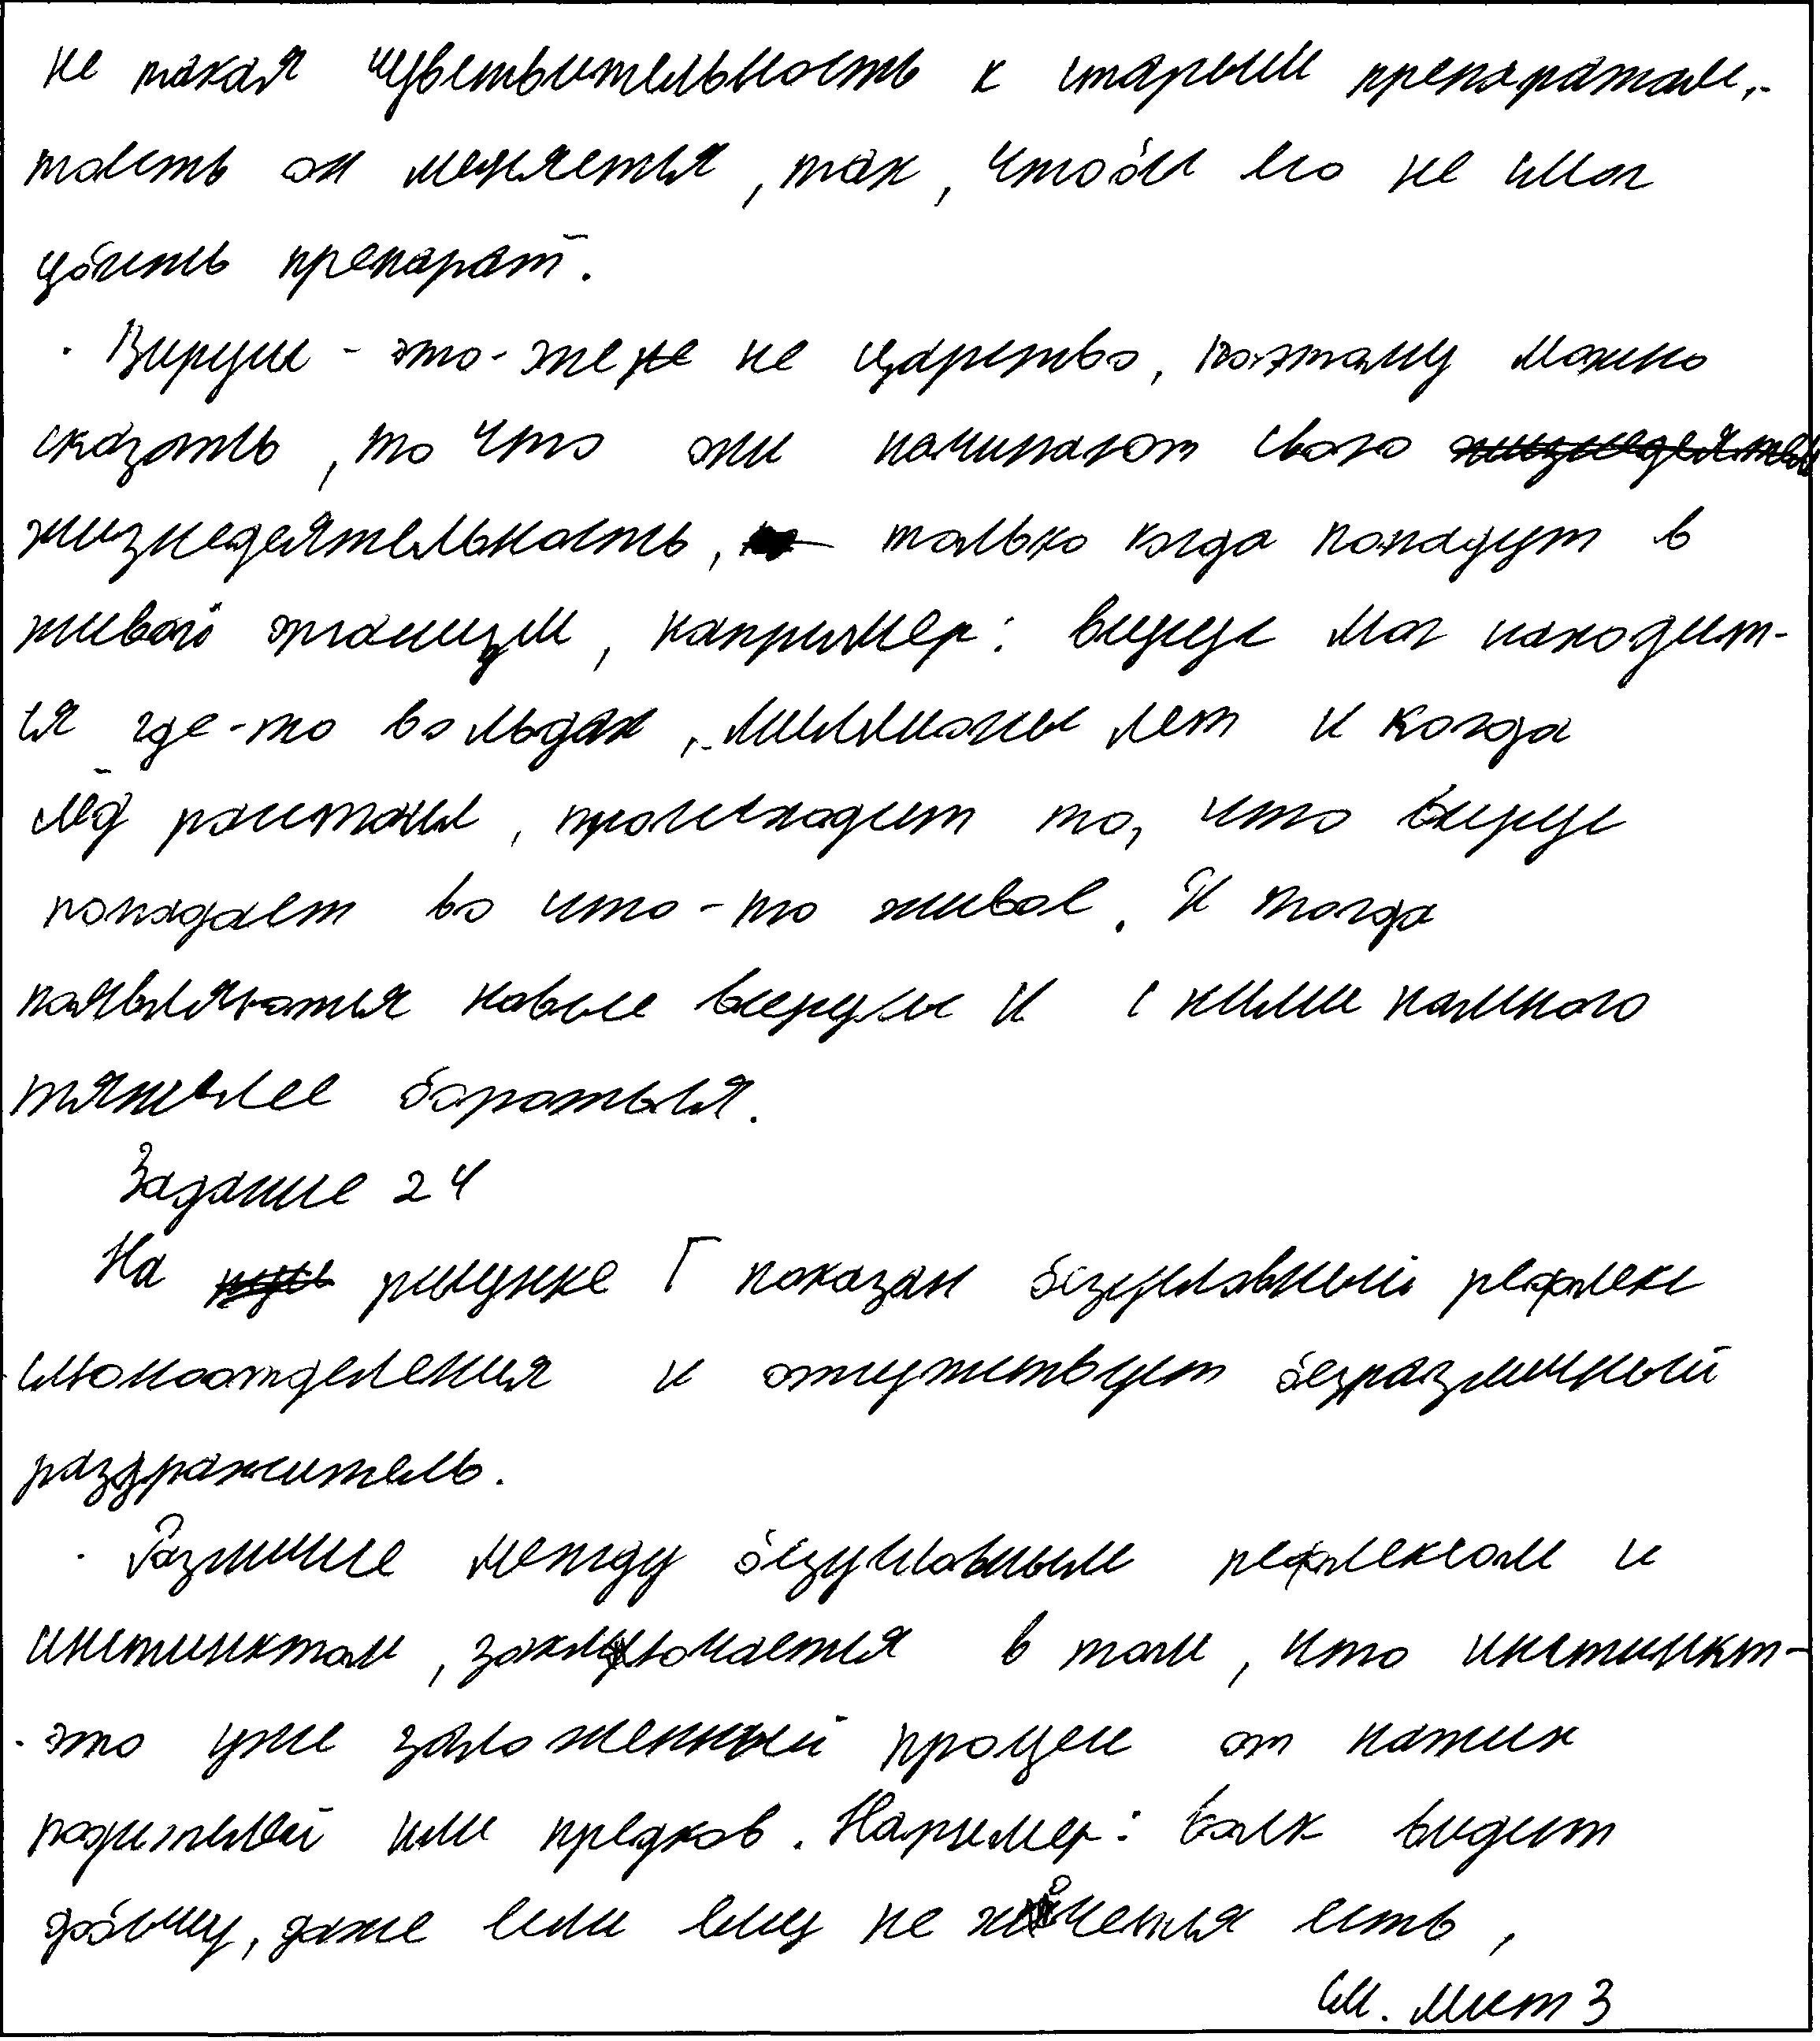 не такая чувствительность к старый препаратам,
тоесть он меняется, так, чтобы его не смог
убить препарат.
· Вирусы - это-же не царство, поэтому можно
сказать, то что они начинают свою
жизнедеятельность, только когда попадут в
живой организм, например: вирус мог находит-
ся где-то во льдах, миллионы лет и когда
лёд растоял, происходит то, что вирус
попадает во что-то живое. И тогда
появляются новые вирусы и с ними намного
тяжелее бороться.
Задание 24
На рисунке Г показан безусловный рефлекс
слюноотделения и отсутствует безразличный
раздражитель.
· Различие между безусловным рефлексом и
инстинктом, заключается в том, что инстинкт-
- это уже заложенный процесс от наших
родителей или предков. Наример: волк видит
добычу, даже если ему не хочется есть,
См. лист 3